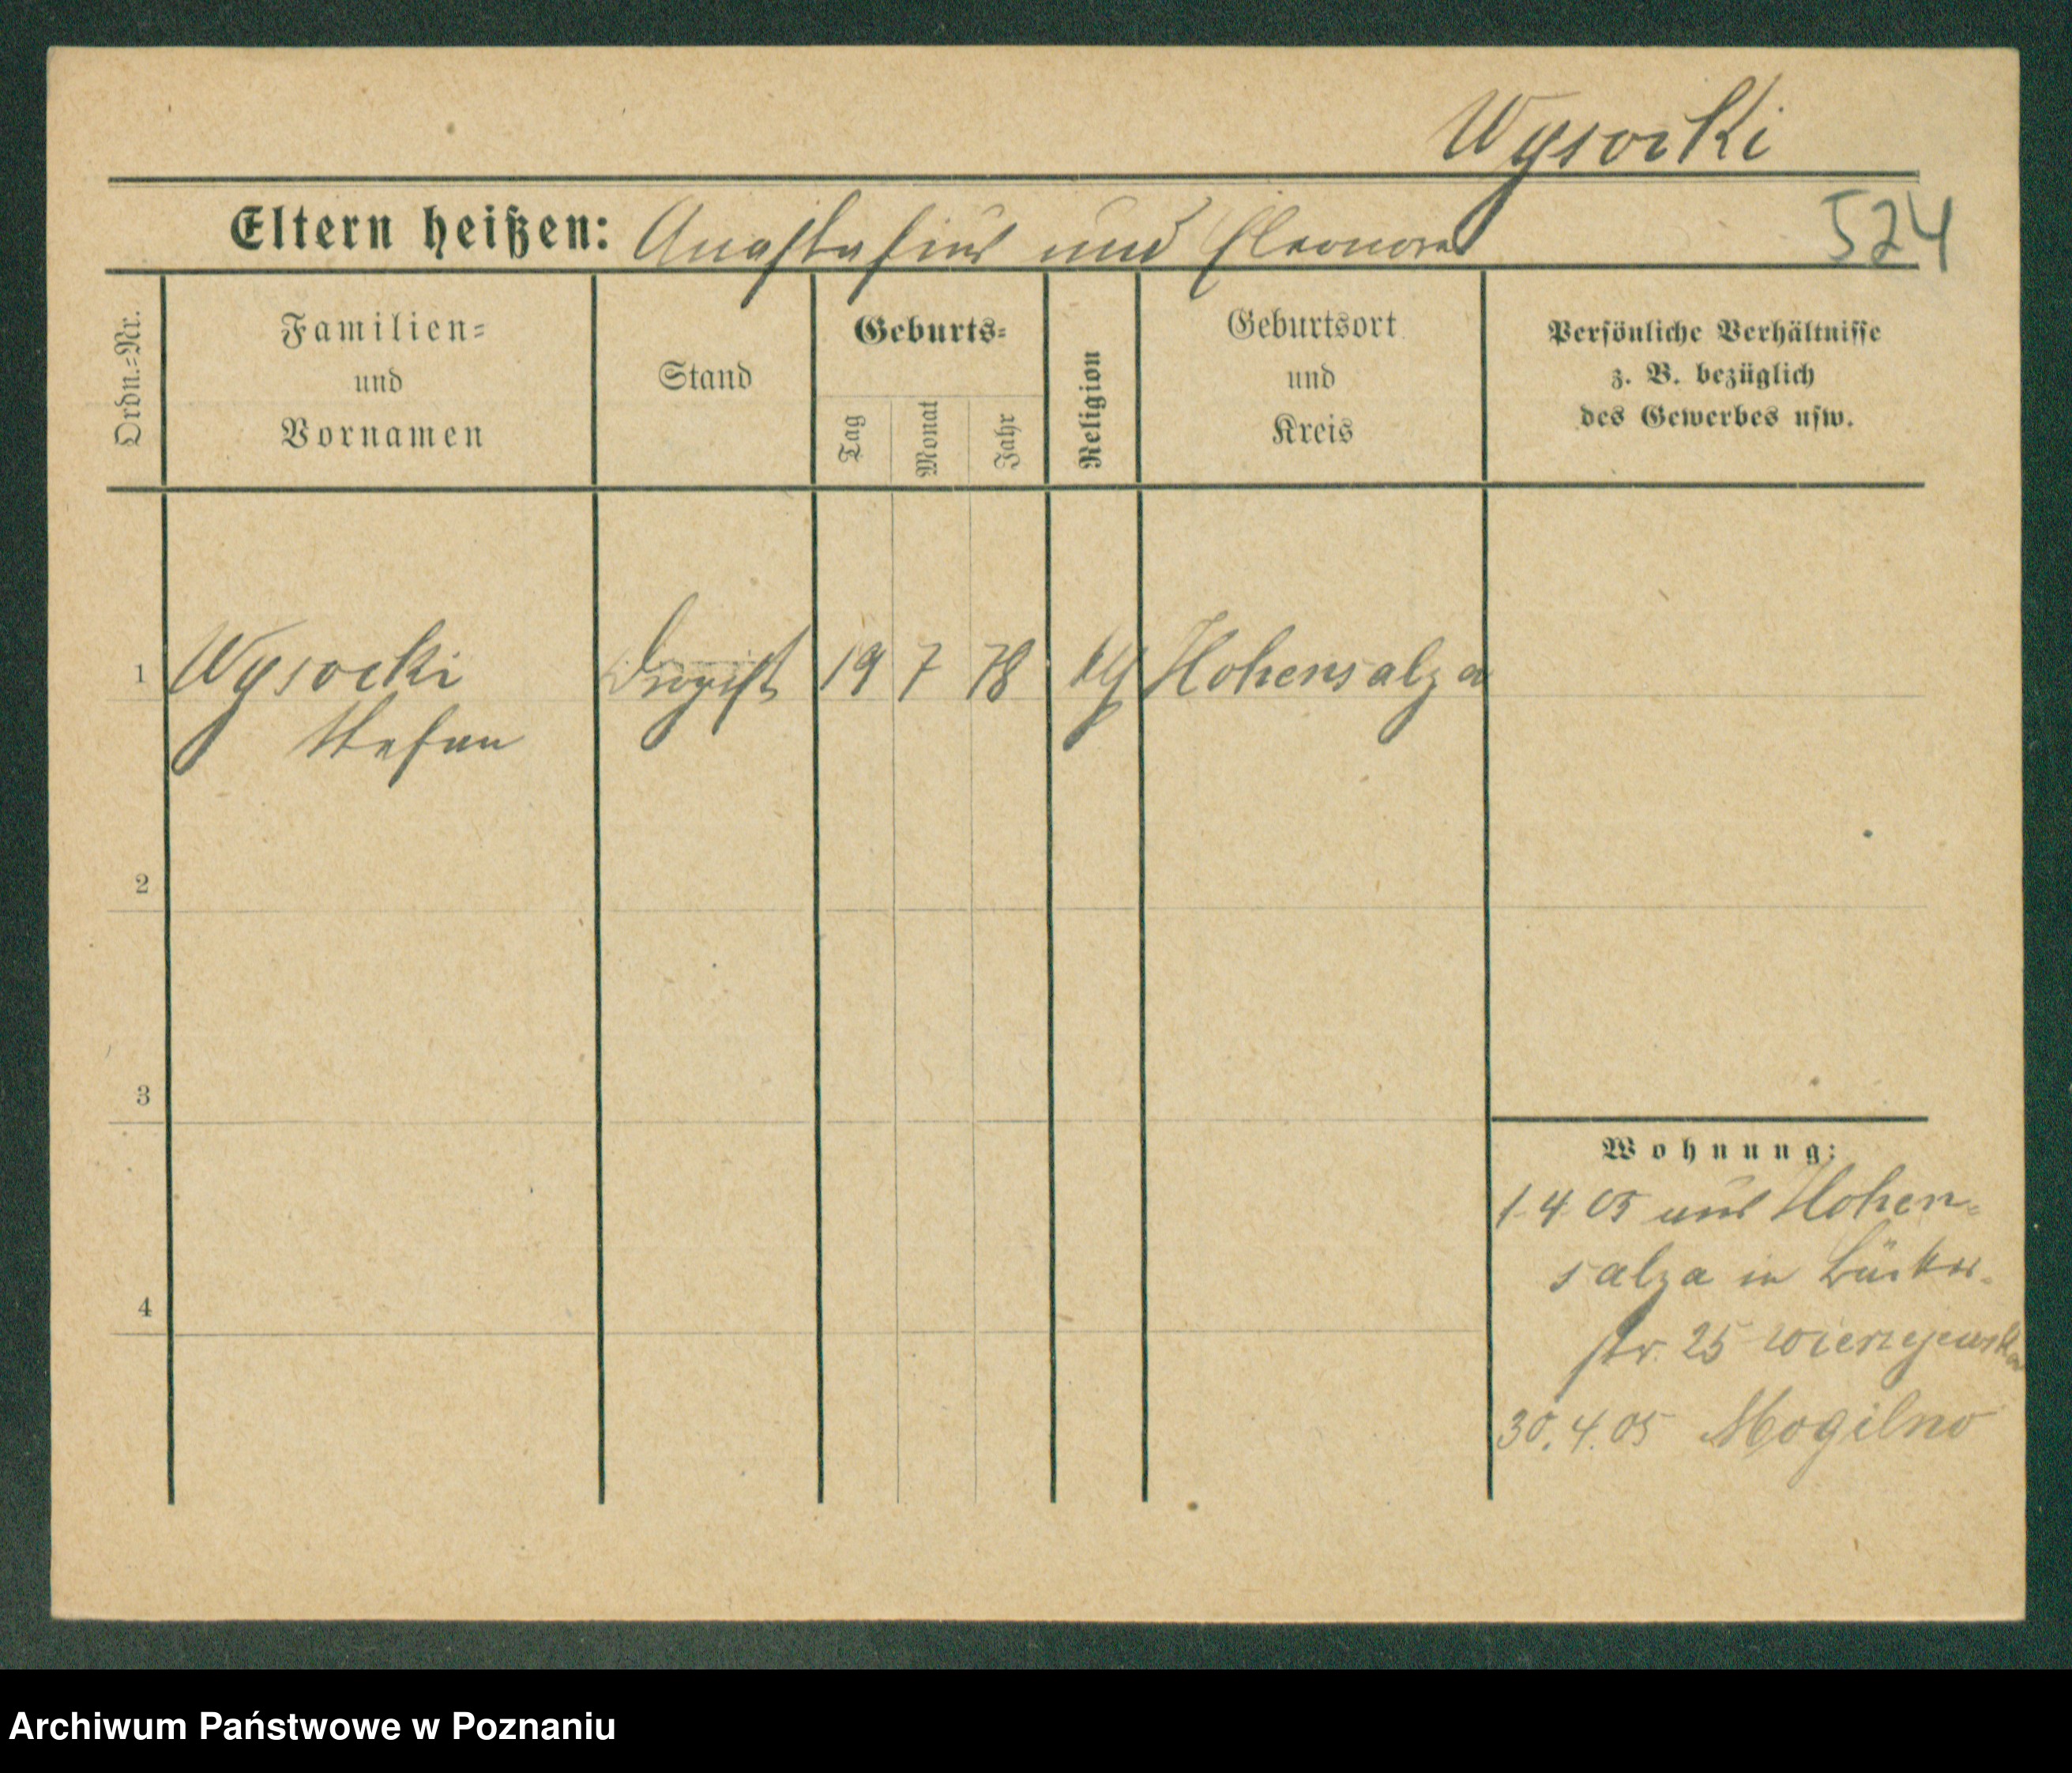 Wysocki
Eltern heißen: Anastasius und Eleonora
524
Ordn.-Nr.
Familien-
und
Vornamen
Stand
Geburts-
Tag
Monat
Jahr
Religion
Geburtsort
und
Kreis
Persönliche Verhältnisse
z. B. bezüglich
des Gewerbes usw.
1 Wysocki Drogist 19 7 78 Hohensalza
Stefan
2
3
4
Wohnung:
1. 4. 05 aus Hohen-
salza in
str. 25
30. 4. 05 Mogilno
Archiwum Państwowe w Poznaniu